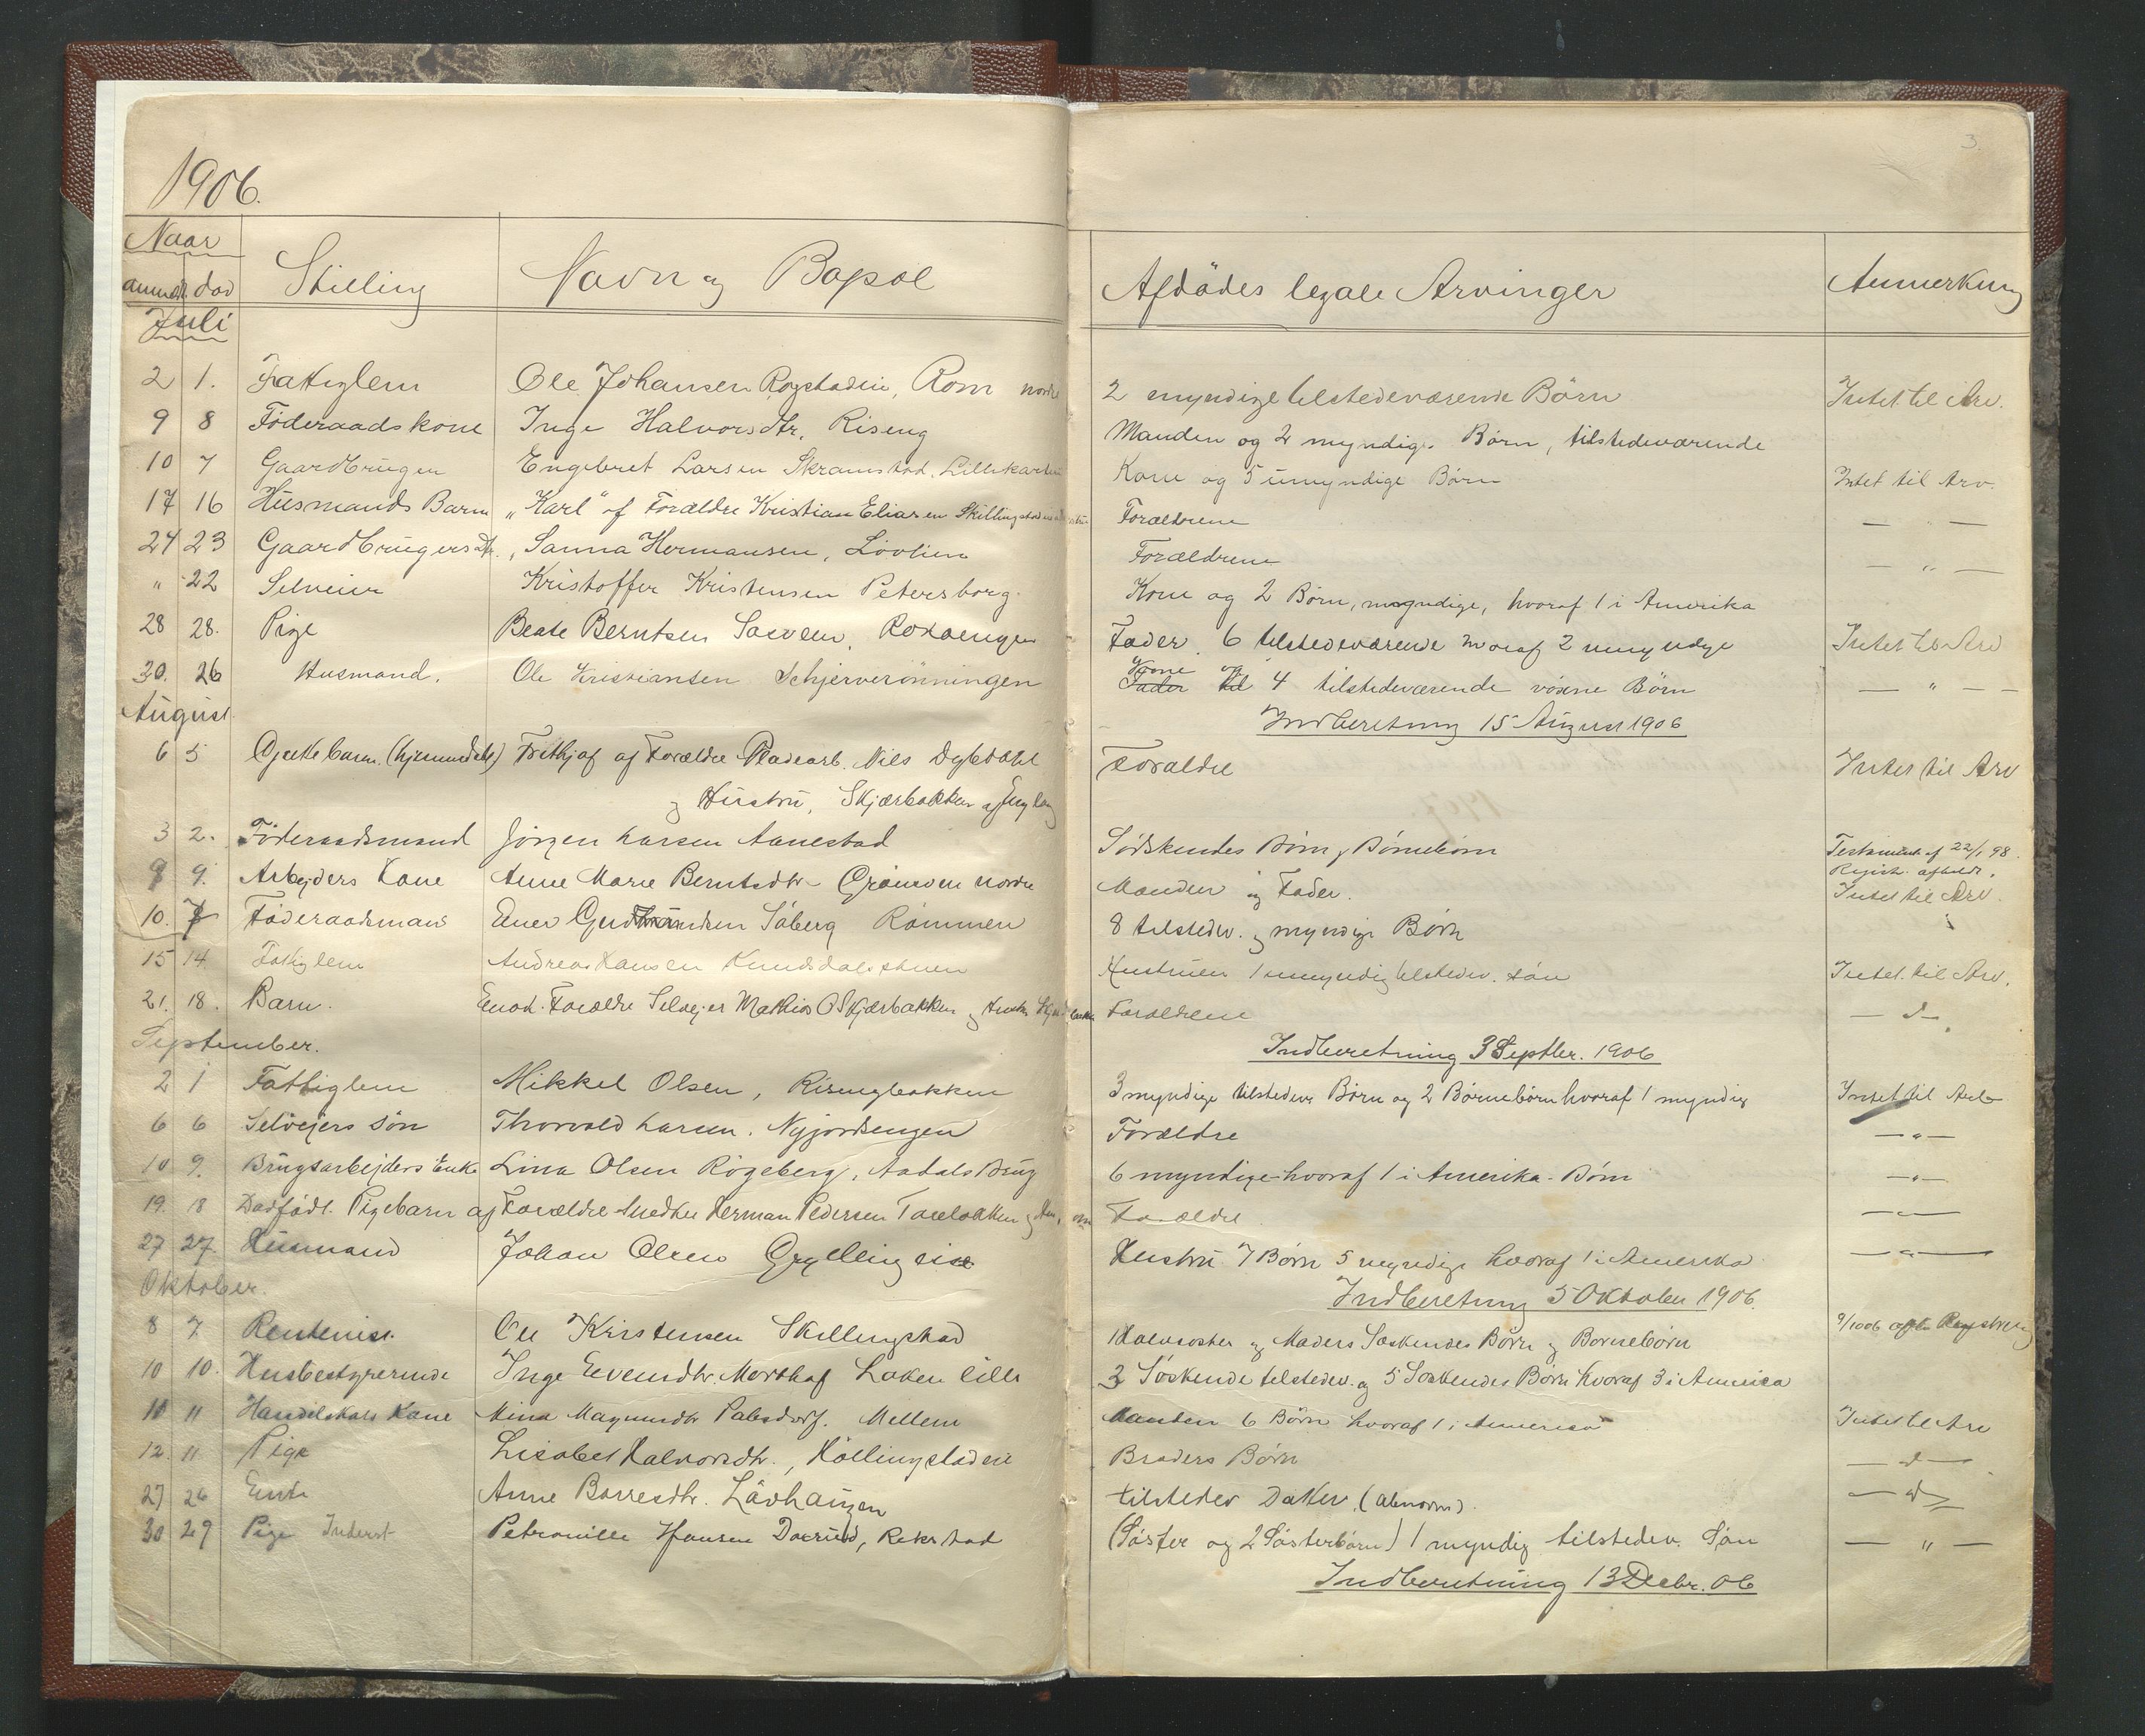 3.
1906.
Naar
anmeldt død Stilling Navn og Bopæl Afdødes legale Arvinger Anmerkning
Juli
2 1. Fattiglem Ole Johansen Rogstadeie, Rom nordre 2 myndige tilstedeværende Børn Intet til Arv.
9 8 Föderaadskone Inge Halvorsdtr. Riseng Manden og 2 myndige Børn, tilstedeværende
10 7 Gaardbruger Engebret Larsen Skramstad, Kone og 5 umyndige Børn Intet til Arv.
17 16 Husmands Barn „Karl“ af Forældre Kristian Eliasen Forældrene — " —
24 23 Gaardbrugersdtr., Sanna Hermansen, Lövlien Forældrene — " —
" 22 Selveier Kristoffer Kristensen Petersborg. Kone og 2 Børn, myndige, hvoraf 1 i Amerika
28 28. Pige Beate Berntsen Sæveen, Fader. 6 tilstedeværende hvoraf 2 umyndige Intet til Arv
30. 26 Husmand. Ole Kristiansen Schjerverönningen Kone og 4 tilstedeværende vöxne Børn — " —
August
Indberetning 15 August 1906
6 5 Frithjof af Forældre Nils Dybdahl Forældre Intet til Arv
og Hustru, Skjærbakken
3 2. Föderaadsmand Jörgen Larsen Aanestad Södskendes Börn og Börnebörn Testament af 22/1 98.
9 9. Arbejders Kone Anne Marie Berntsdtr. nordre Manden og Fader. Intet til Arv.
10. 7 Föderaadsmand Ener Gudmundsen Såberg Rømmen 8 tilstedev. og myndige Børn
15 14 Fattiglem Andreas Hansen Knudsdalsstuen Hustruen 1 umyndig tilstedev. sön Intet til Arv.
21. 18. Barn. Forældre Selvejer Mathias O Skjærbakken og Hustru Forældrene — d —
September.
Indberetning 3 Septbr. 1906
2 1 Fattiglem Mikkel Olsen, Risengbakken 3 myndige tilstedev Børn og 2 Børnebörn hvoraf 1 myndig Intet til Arv
6 6 Selvejers Sön Thorvald Larsen. Nyjordsengen Forældre — " —
10 9. Brugsarbejders Enke Lina Olsen Rögeberg, Aadals Brug 6 myndige hvoraf 1 i Amerika. Börn — " —
19. 18 Dødfødt Pigebarn af Forældre Snedker Herman Pedersen Forældre — " —
27 27. Husmand Johan Olsen Gryllingeie Hustru 7 Børn 5 myndige hvoraf 1 i Amerika — " —
Oktober.
Indberetning 5 Oktober 1906.
8 7. Rentenist. Ole Kristensen Skillingstad 1 Halvsøster og Moders Søskendes Børn og Bornebørn
10 10. Husbestyrerinde Inge Evensdtr. Løken lille 2 Söskende tilstedev. og 5 Søskendes Børn hvoraf 3 i America
11 11 Kone Mina Magnusdtr. Mellem Manden 6 Børn hvoraf 1 i America Intet til Arv
12. 11. Pige Lisabet Halvorsdtr., Hóllingstadeie Broders Børn — d —
27 26 Enke Anne Borresdtr. Lövhaugen tilstedev Datter. (abnorm). — d —
30 29 Pige Inderst Petronille Hansen Dæsrud, Rekstad (Söster og 2 Sösterbörn) 1 myndig tilstedev. Sön — " —
Indberetning 13 Decbr. 06